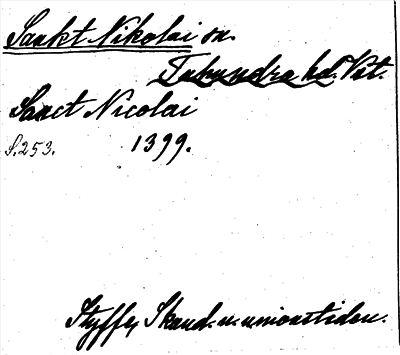 Sankt Nikolai sn.
Tuhundra hd. Vst.
Sanct Nicolai
S. 253. 1399.
Styffe, Skand. u. unionstiden.